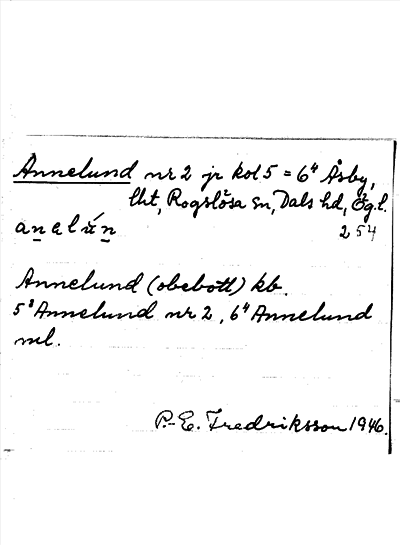 Annelund nr 2 jr kol 5 = 6⁴ Åsby,
lht, Rogslösa sn, Dals hd, Ög. l.
anelún 254
Annelund (obebott) kb.
5⁸ Annelund nr 2, 6⁴ Annelund
ml.
P.-E. Fredriksson 1946.